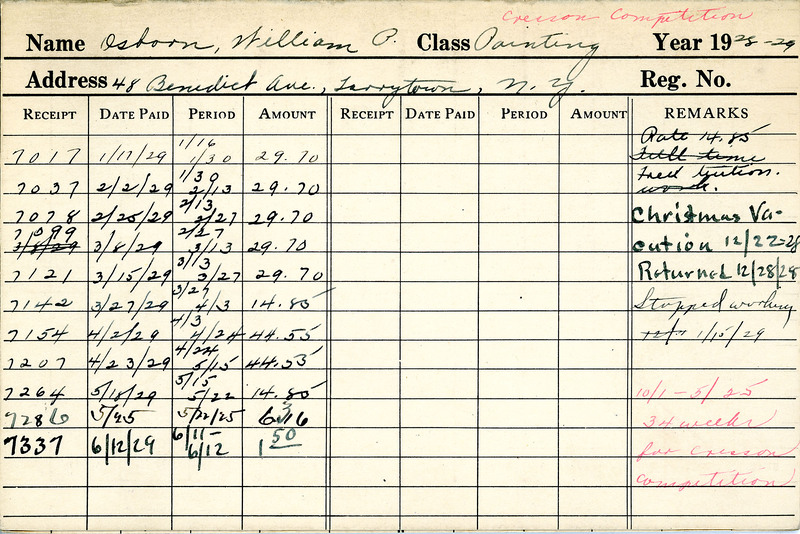 Cresson Competition
Name Osborn, William P. Class Painting Year 1928-29
Address 48 Benedict Ave., Tarrytown, N.Y. Reg. No.
RECEIPT DATE PAID PERIOD AMOUNT RECEIPT DATE PAID PERIOD AMOUNT REMARKS
Rate 14.85
1/16
7017 1/17/29 1/30 29.70 Full time
1/30 Free tuition.
7037 2/2/29 2/13 29.70 work.
2/13
7078 2/25/29 2/27 29.70 Christmas Va-
7099 2/27
3/8/29 3/8/29 3/13 29.70 cation 12/22-28
3/13
7121 3/15/29 3/27 29.70 Returned 12/28/28
3/27
7142 3/27/29 4/3 14.85 Stopped working
4/3
7154 4/2/29 4/24 44.55 1/15/29
4/24
7207 4/23/29 5/15 44.55
5/15
7264 5/18/29 5/22 14.85 10/1-5/25
7286 5/25 5/22/25 34 weeks
6/11-
7337 6/12/29 6/12 1.50 for Cresson
Competition